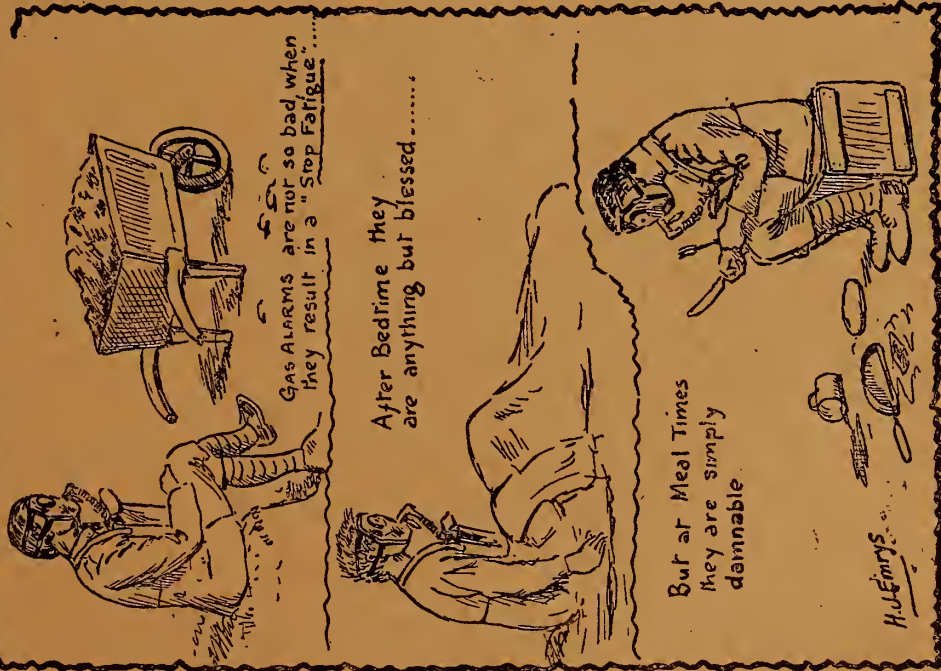 GAS ALARMS are not so bad, when
they result in a "Stop Fatigue"....
After Bedtime they
are anything but blessed.......
But at Meal Times
they are simply
damnable
H.J. Emrys